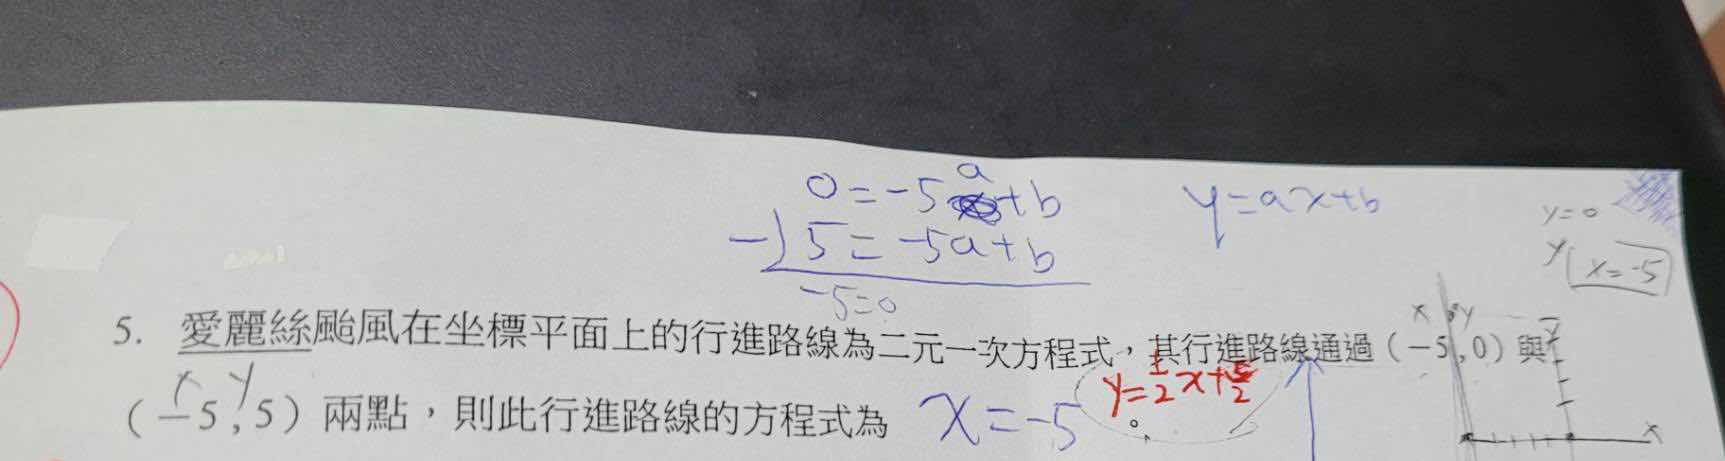 0=-5a+b
y=ax+b
-) 5=-5a+b
-5=0
y=0
y
x=-5
x y
5. 愛麗絲颱風在坐標平面上的行進路線為二元一次方程式，其行進路線通過（-5,0）與
x y
y=1/2x+5/2
（-5,5）兩點，則此行進路線的方程式為 x=-5 。
x